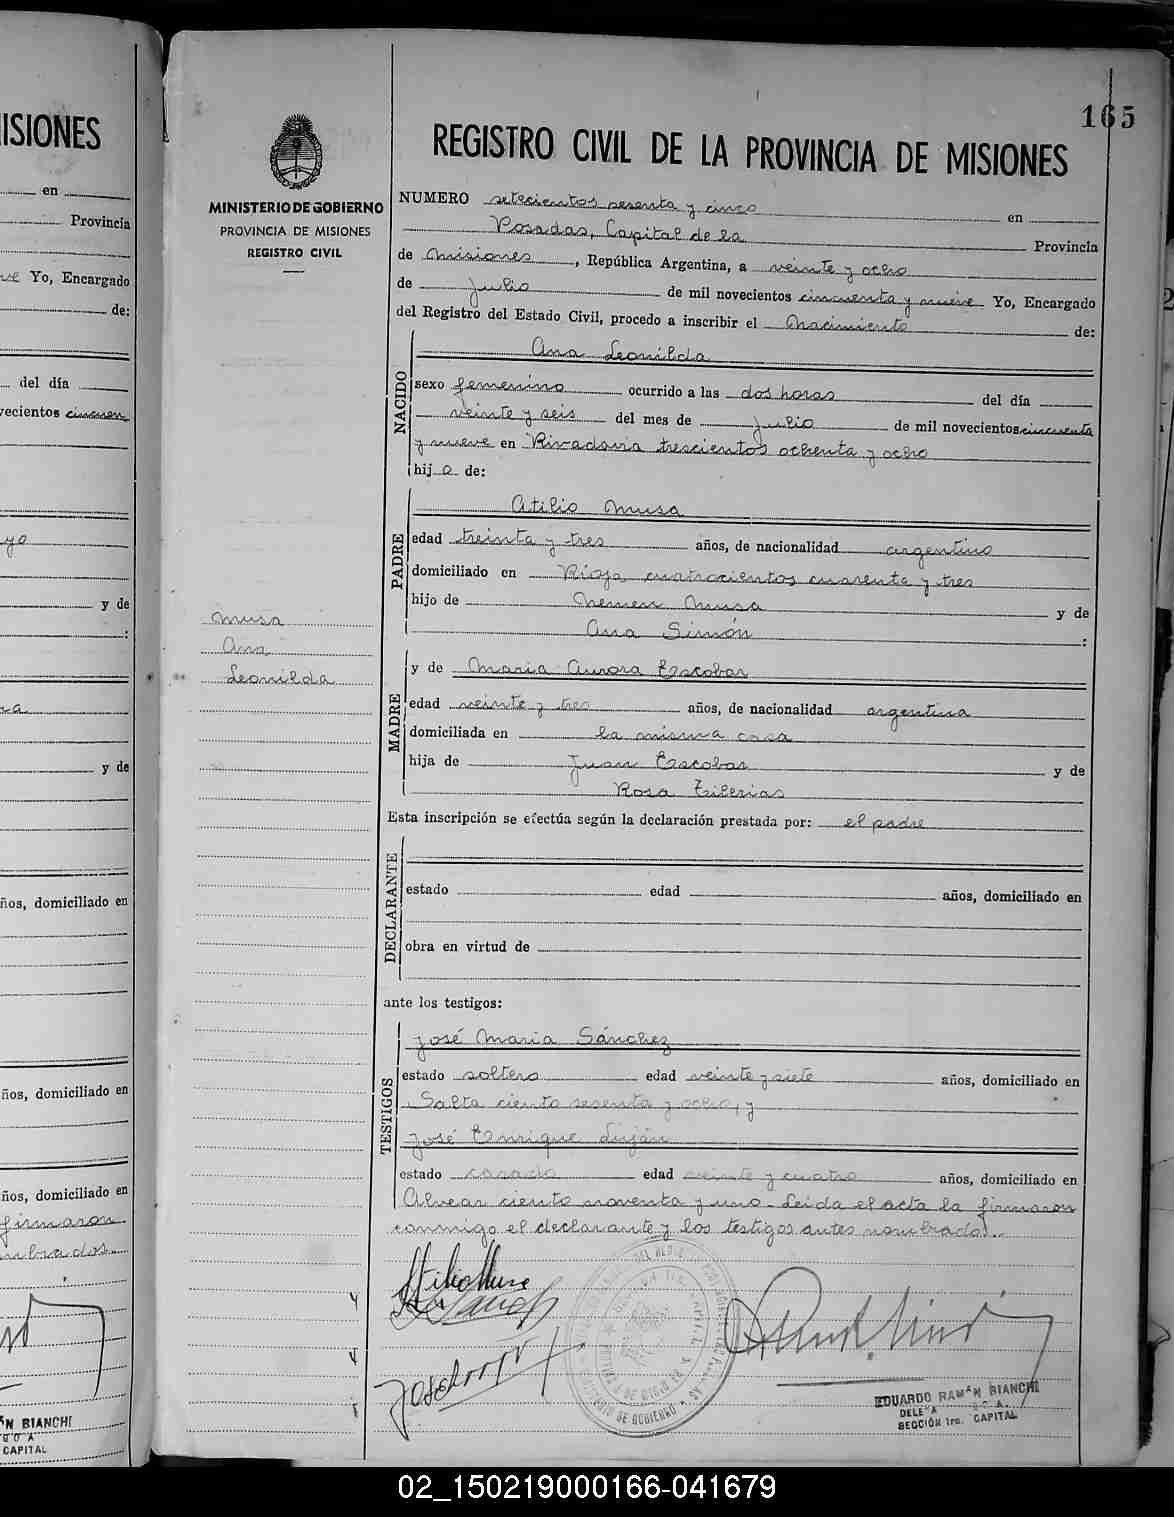 ISIONES
en
Provincia
Yo, Encargado
de:
del día
vecientos cincuen
yo
y de
:
ra
y de
ños, domiciliado en
ños, domiciliado en
ños, domiciliado en
firmaron
mbrados.
ÁN BIANCHI
CAPITAL
165
REGISTRO CIVIL DE LA PROVINCIA DE MISIONES
MINISTERIO DE GOBIERNO
PROVINCIA DE MISIONES
REGISTRO CIVIL
NUMERO setecientos sesenta y cinco en
Posadas, Capital de la Provincia
de Misiones, República Argentina, a veinte y ocho
de Julio de mil novecientos cincuenta y nueve Yo, Encargado
del Registro del Estado Civil, procedo a inscribir el Nacimiento de:
NACIDO
Ana Leonilda
sexo femenino ocurrido a las dos horas del día
veinte y seis del mes de Julio de mil novecientos cincuenta
y nueve en Rivadavia trescientos ochenta y ocho
hija de:
PADRE
Atilio Musa
edad treinta y tres años, de nacionalidad argentino
domiciliado en Rioja cuatrocientos cuarenta y tres
hijo de Nemen Musa y de
Ana Simón :
Musa
Ana
Leonilda
MADRE
y de Maria Aurora Escobar
edad veinte y tres años, de nacionalidad argentina
domiciliada en la misma casa
hija de Juan Escobar y de
Rosa
Esta inscripción se efectúa según la declaración prestada por: el padre
DECLARANTE
estado edad años, domiciliado en
obra en virtud de
ante los testigos:
TESTIGOS
José Maria Sánchez
estado soltero edad veinte y siete años, domiciliado en
Salta ciento sesenta y ocho, y
José Enrique Luján
estado casado edad veinte y cuatro años, domiciliado en
Alvear ciento noventa y uno. Leída el acta la firmaron
conmigo el declarante y los testigos antes nombrados.
Atilio Musa
EDUARDO RAMÓN BIANCHI
SECCIÓN 1ra. CAPITAL
02_150219000166-041679